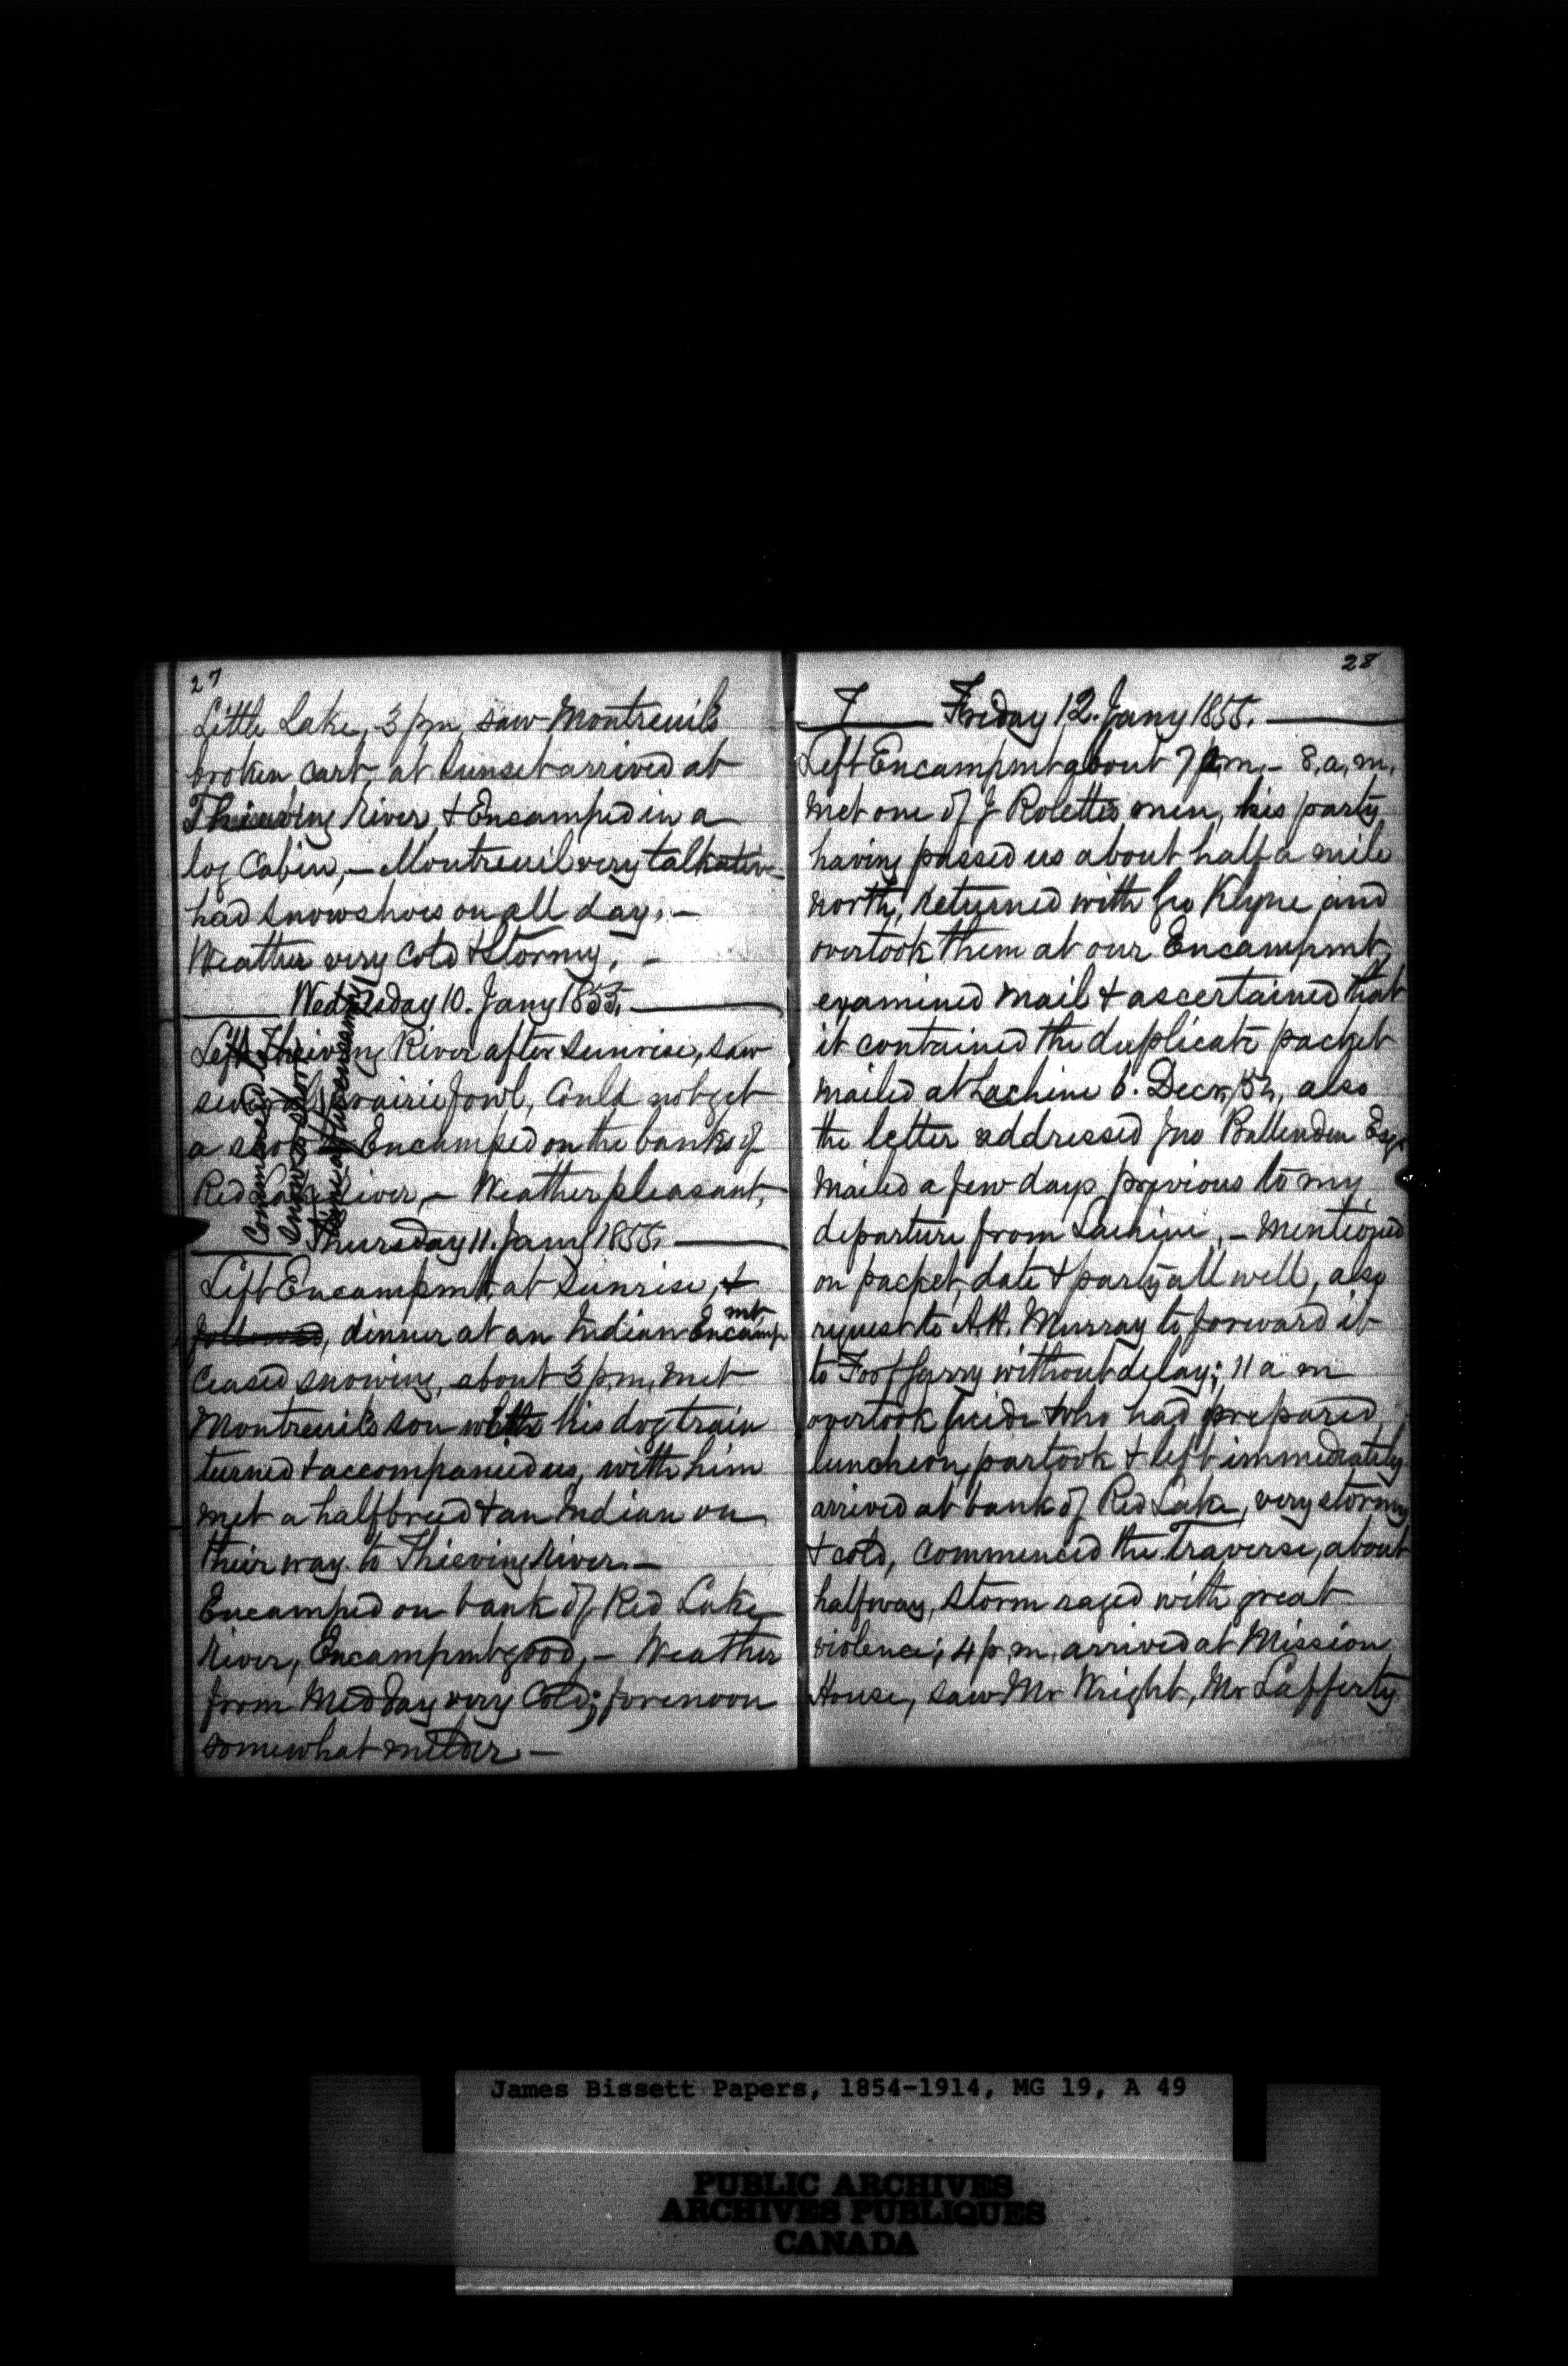 27
Little Lake, 3 pm, saw Montreuil's
broken cart, at Sunset arrived at
Thieving River, & Encamped in a
log Cabin, – Montreuil very talkative
had snowshoes on all day, –
Weather very Cold & Stormy, –
Wednesday 10. Jany 1855.
Left Thieving River after Sunrise, saw
several prairie fowl, Could not get
a shot – Encamped on the banks of
Red Lake River, – Weather pleasant, –
Commenced to
snow a short
time after encamping
Thursday 11. Jany 1855.
Left Encampmt, at Sunrise, &
followed, dinner at an Indian Encampmt
Ceased snowing, about 3 p.m, met
Montreuil's son with his dog train
turned & accompanied us, with him
met a halfbreed & an Indian on
their way to Thieving River. –
Encamped on bank of Red Lake
River, Encampmt good, – Weather
from Midday very Cold; forenoon
somewhat milder –
28
7 Friday 12. Jany 1855.
Left Encampmt about 7 a.m, – 8, a, m,
met one of J Rolettes men, his party
having passed us about half a mile
north, returned with Geo Klyne and
overtook them at our Encampmt,
examined mail & ascertained that
it contained the duplicate packet
mailed at Lachine 6. Decr, also
the letter addressed Jno Ballenden Esqr
mailed a few days previous to my
departure from Lachine, – mentioned
on packet, date & party all well, also
request to A.H. Murray to forward it
to Foort Garry without delay; 11 a m
overtook Guide who had prepared
luncheon, partook & left immediately
arrived at bank of Red Lake, very stormy
& cold, Commenced the Traverse, about
halfway, Storm raged with great
violence; 4 p.m, arrived at Mission
House, saw Mr Wright, Mr Lafferty
James Bissett Papers, 1854-1914, MG 19, A 49
PUBLIC ARCHIVES
ARCHIVES PUBLIQUES
CANADA